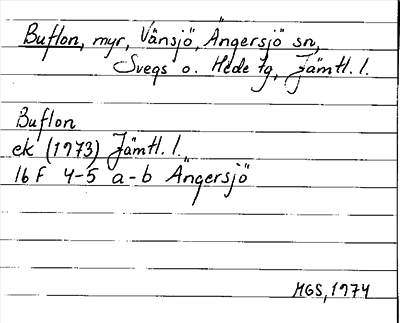 Buflon, myr, Vänsjö, Ängersjö sn,
Svegs o. Hede tg, Jämtl. l.
Buflon
ek (1973) Jämtl. l.
16 F 4-5 a-b Ängersjö
MGS, 1974